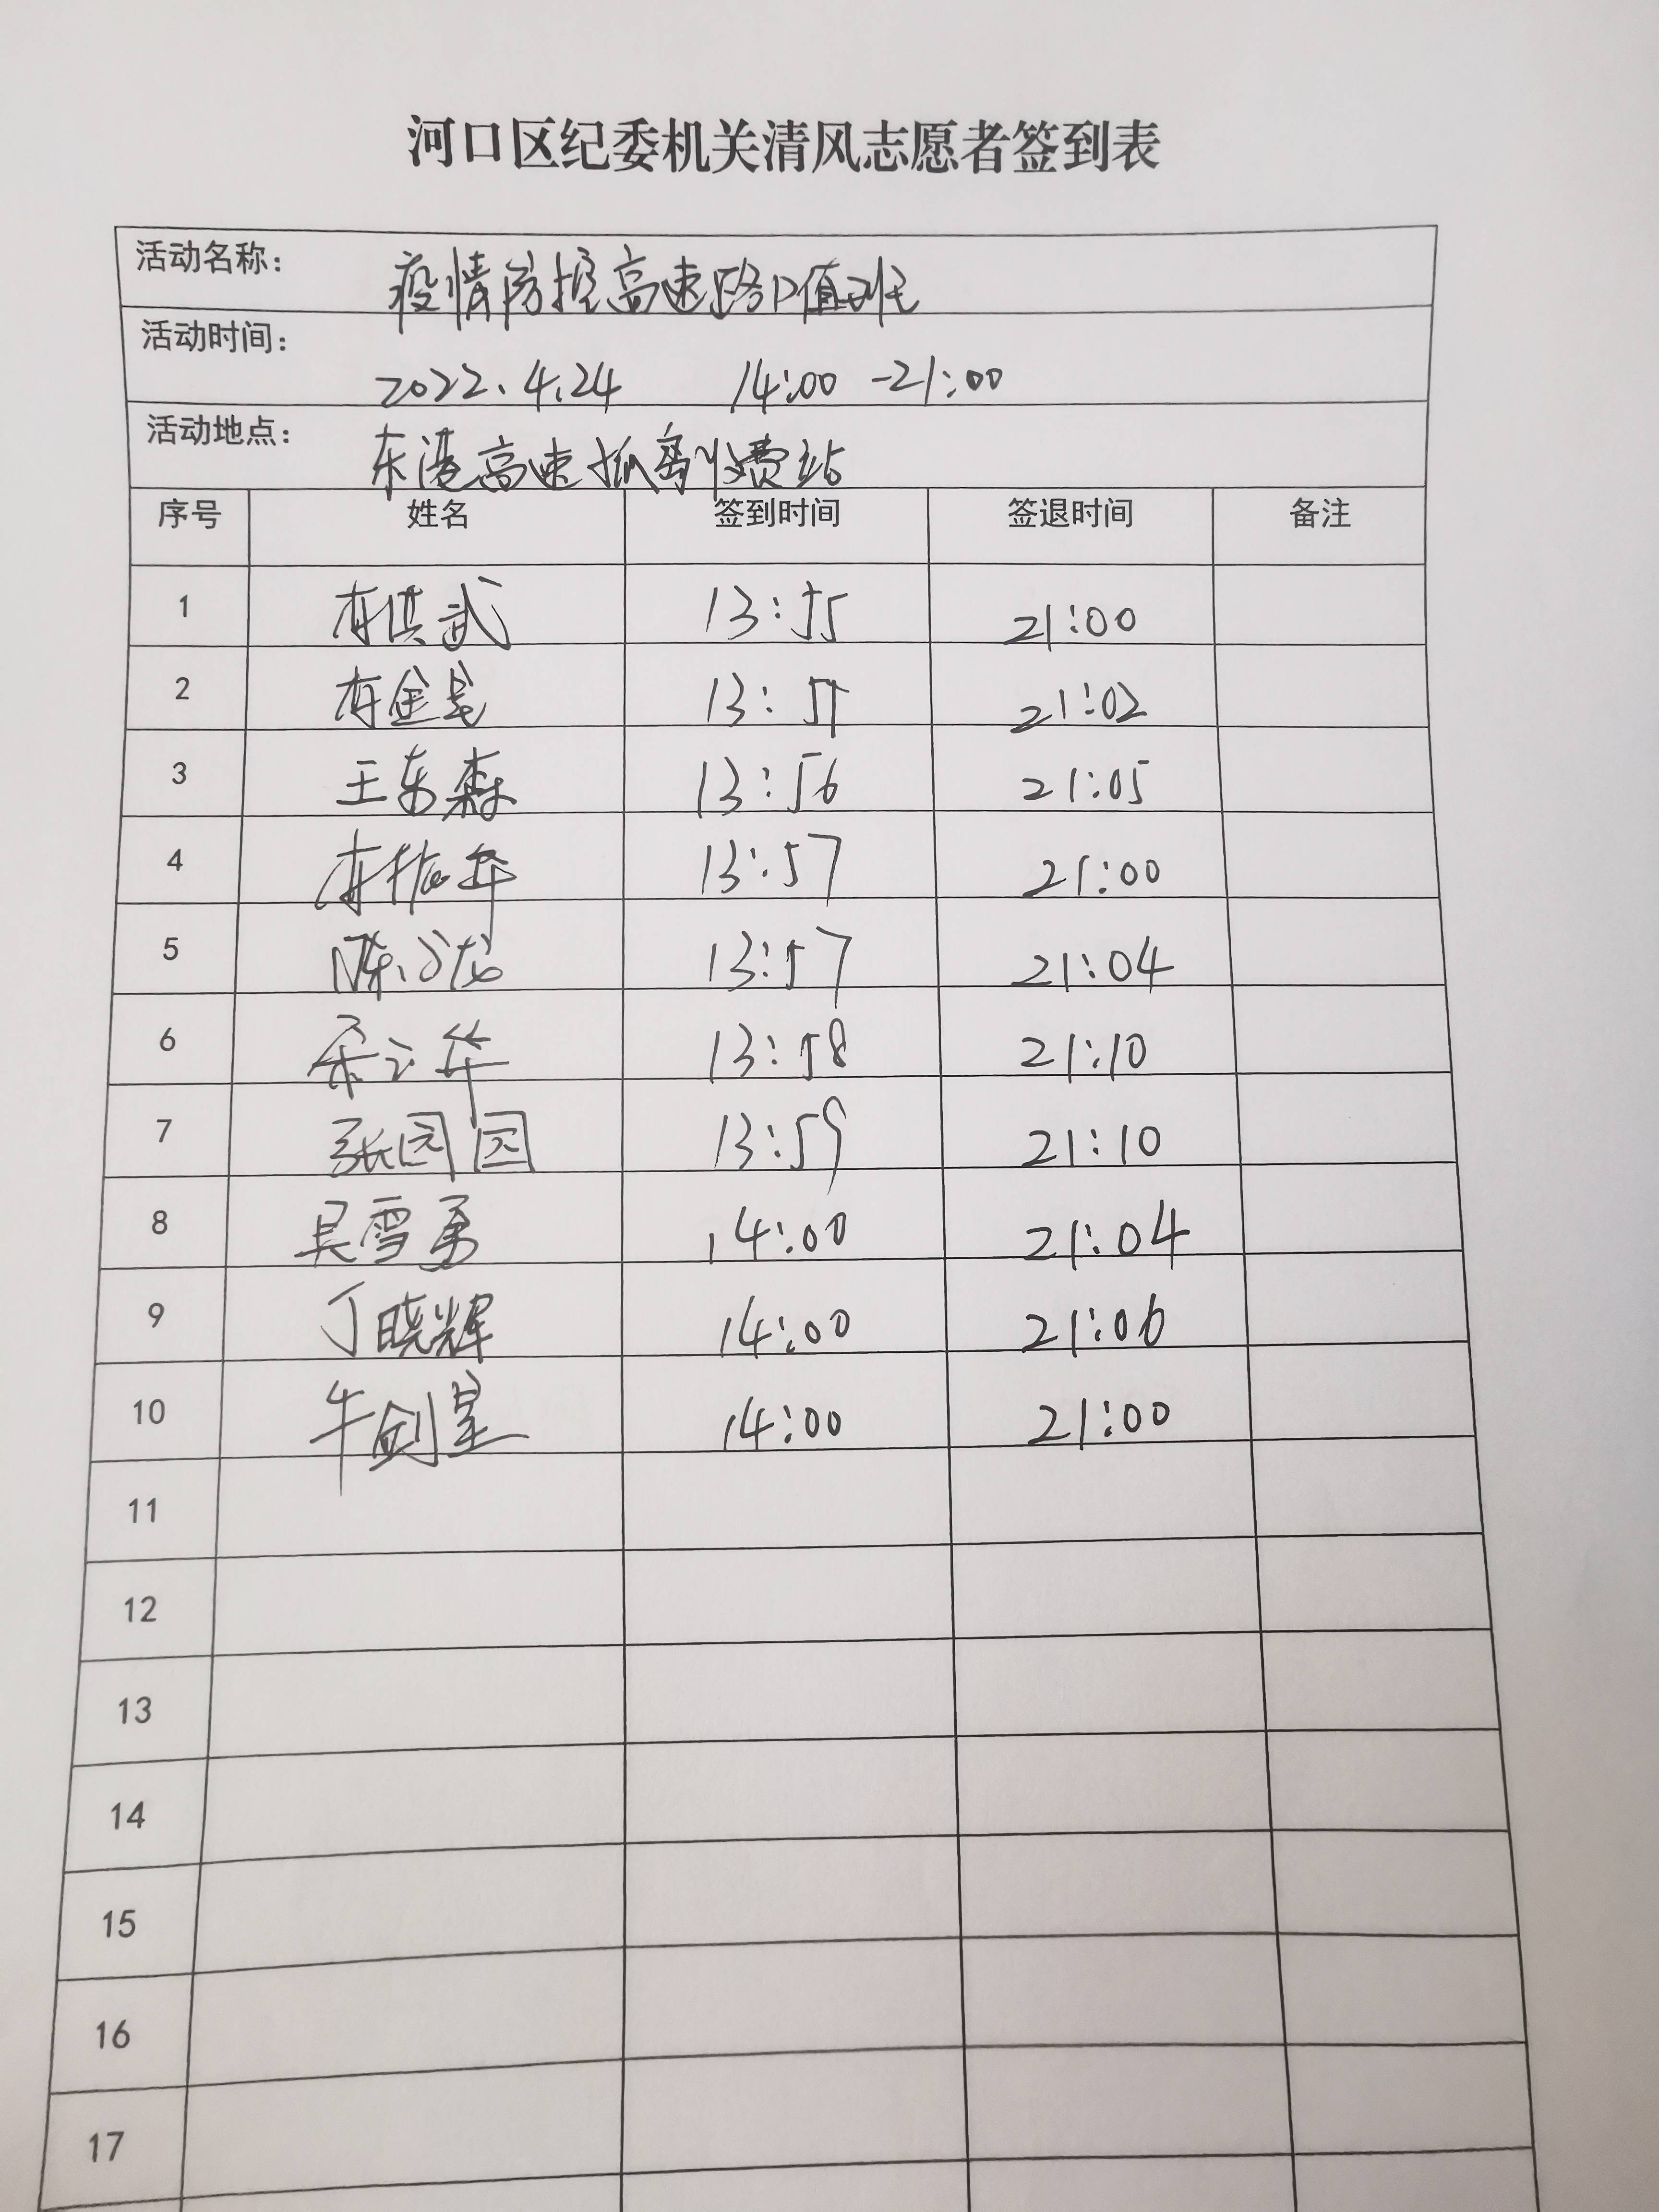 河口区纪委机关清风志愿者签到表
活动名称： 疫情防控高速路口值班
活动时间： 2022.4.24 14:00-21:00
活动地点： 东港高速孤岛收费站
序号 姓名 签到时间 签退时间 备注
1 武 13:55 21:00
2 金 13:55 21:02
3 王东森 13:56 21:05
4 振华 13:57 21:00
5 陈 龙 13:57 21:04
6 华 13:58 21:10
7 张园园 13:59 21:10
8 吴雪勇 14:00 21:04
9 丁晓辉 14:00 21:06
10 牛剑星 14:00 21:00
11
12
13
14
15
16
17